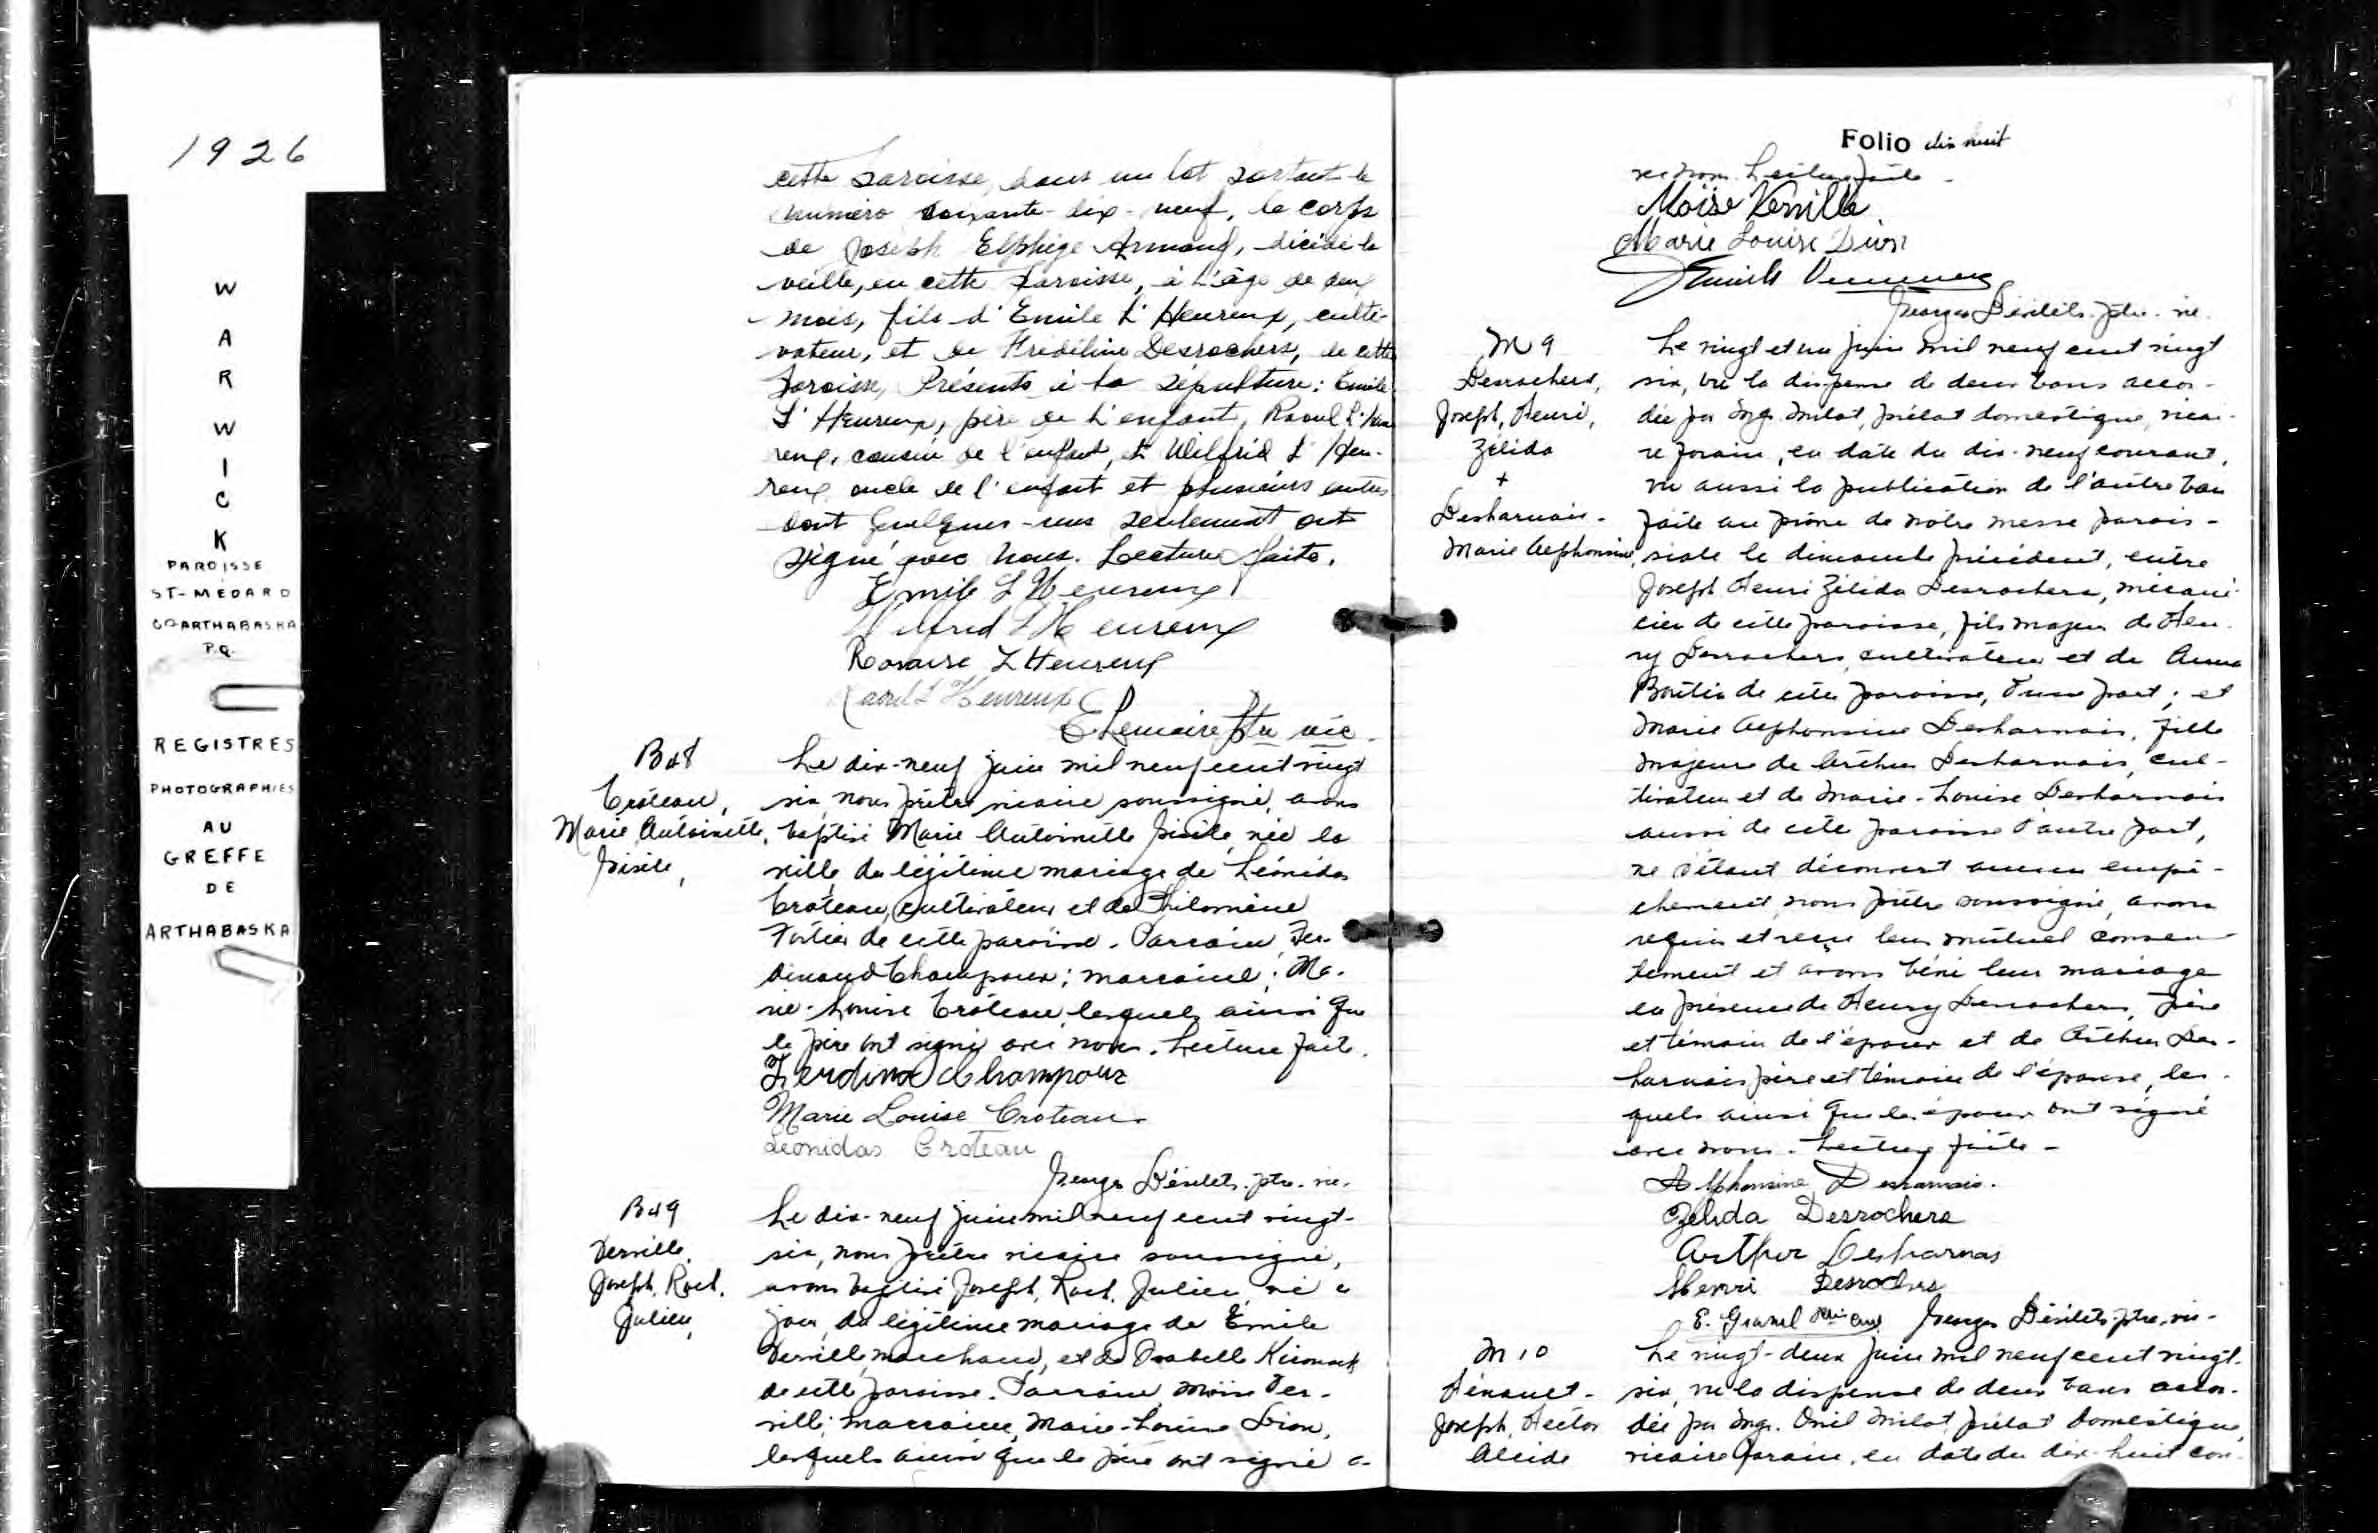 1926
W
A
R
W
I
C
K
PAROISSE
ST-MÉDARD
CO ARTHABASKA
P.Q.
REGISTRES
PHOTOGRAPHIES
AU
GREFFE
DE
ARTHABASKA
cette paroisse, dans un lot portant le
numéro soixante-dix-neuf, le corps
de Joseph Elphège Armand, décédé la
veille, en cette paroisse, à l'âge de deux
mois, fils d'Emile L'Heureux, culti-
vateur, et de Frédéline Desrochers, de cette
paroisse, Présents à la sépulture: Emile
L'Heureux, père de l'enfant, Raoul L'Heu
reux, cousin de l'enfant, et Wilfrid L'Heu-
reux oncle de l'enfant et plusieurs autres
dont quelques-uns seulement ont
signé avec nous. Lecture faite.
Emile L'Heureux
Wilfrid L'Heureux
Rosaire L'Heureux
Raoul L'Heureux
E Lemaire Ptre vic.
B48
Croteau,
Marie Antoinette,
Gisèle,
Le dix-neuf juin mil neuf cent vingt
six, nous prêtre vicaire soussigné, avons
baptisé Marie Antoinette Gisèle, née la
veille du légitime mariage de Léonidas
Croteau, cultivateur et de Philomène
Fortier de cette paroisse. Parrain, Fer-
dinand Champoux; marraine: Ma-
rie-Louise Croteau, lesquels ainsi que
le père ont signé avec nous. Lecture faite.
Ferdina Champoux
Marie Louise Croteau
Léonidas Croteau
Georges Désilets. ptre. vic.
B49
Verville,
Joseph, Roch,
Julien,
Le dix-neuf juin mil neuf cent vingt-
six, nous prêtre vicaire soussigné,
avons baptisé Joseph, Roch, Julien, né ce
jour, du légitime mariage de Emile
Verville, marchand, et de Isabelle Kirouack
de cette paroisse. Parrain, Moïse Ver-
ville; marraine, Marie-Louise Dion,
lesquels ainsi que le père ont signé a-
Folio dix huit
vec nous. Lecture faite.
Moïse Verville
Marie Louise Dion
Emile Verville
Georges Désilets. ptre. vic.
M 9
Desrochers,
Joseph, Henri,
Zélida
+
Desharnais-
Marie Alphonsine,
Le vingt et un juin mil neuf cent vingt
six, vu la dispense de deux bans accor-
dée par Mgr. Milot, prélat domestique, vicai-
re forain, en date du dix-neuf courant,
vu aussi la publication de l'autre ban
faite au prône de notre messe parois-
siale le dimanche précédent, entre
Joseph Henri Zélida Desrochers, mécani-
cien de cette paroisse, fils majeur de Hen-
ry Desrochers, cultivateur et de Anna
Boutin de cette paroisse, d'une part; et
Marie Alphonsine Desharnais, fille
majeure de Arthur Desharnais, cul-
tivateur et de Marie-Louise Desharnais
aussi de cette paroisse d'autre part,
ne s'étant découvert aucun empê-
chement, nous prêtre soussigné, avons
requis et reçu leur mutuel consen-
tement et avons béni leur mariage
en présence de Henry Desrochers, père
et témoin de l'époux et de Arthur Des-
harnais père et témoin de l'épouse, les-
quels ainsi que les époux ont signé
avec nous. Lecture faite-
Alphonsine Desharnais.
Zélida Desrochers
Arthur Desharnais
Henri Desrochers
E. Gravel Georges Désilets, ptre, vic-
M 10
Hénault-
Joseph, Hector
Alcide
Le vingt-deux juin mil neuf cent vingt-
six, vu la dispense de deux bans accor-
dée par Mgr. Onil Milot, prélat domestique,
vicaire forain, en date du dix-huit cou-